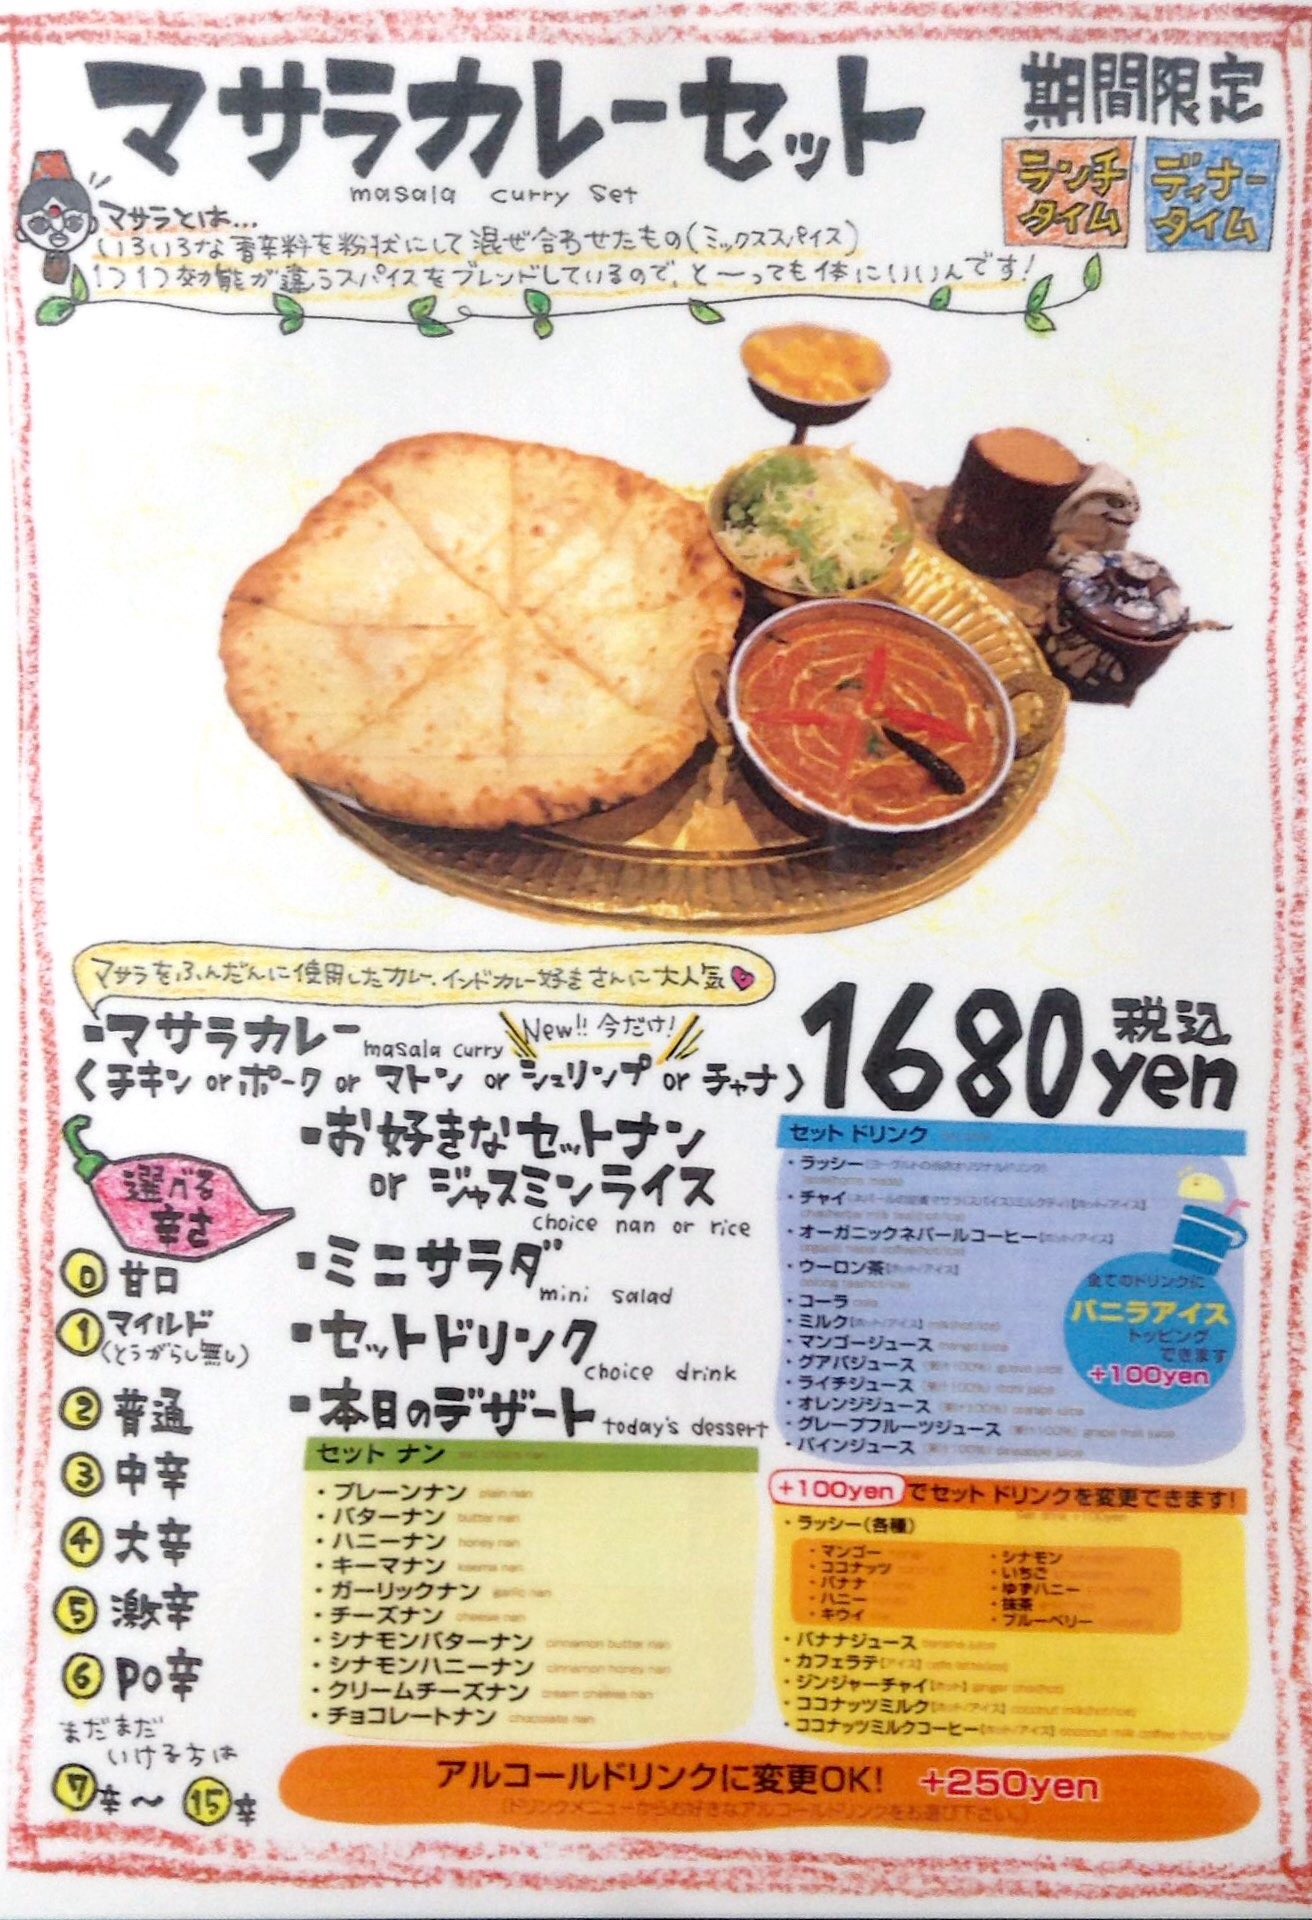 マサラカレーセット
masala curry set
期間限定
ランチタイム
ディナータイム
マサラとは…
いろいろな香辛料を粉状にして混ぜ合わせたもの(ミックススパイス)
1つ1つ効能が違うスパイスをブレンドしているので、と〜っても体にいいんです!
マサラをふんだんに使用したカレー。インドカレー好きさんに大人気
・マサラカレー masala curry New!! 今だけ!
〈チキン or ポーク or マトン or シュリンプ or チャナ〉
1680yen 税込
・お好きなセットナン
or ジャスミンライス
choice nan or rice
・ミニサラダ
mini salad
・セットドリンク
choice drink
・本日のデザート today's dessert
選べる辛さ
0 甘口
1 マイルド
(とうがらし無し)
2 普通
3 中辛
4 大辛
5 激辛
6 PO辛
まだまだ
いける方は
7辛〜15辛
セット ナン
・プレーンナン plain nan
・バターナン butter nan
・ハニーナン honey nan
・キーマナン keema nan
・ガーリックナン garlic nan
・チーズナン cheese nan
・シナモンバターナン cinnamon butter nan
・シナモンハニーナン cinnamon honey nan
・クリームチーズナン cream cheese nan
・チョコレートナン chocolate nan
セット ドリンク
・ラッシー
・チャイ
・オーガニックネパールコーヒー【ホット/アイス】
・ウーロン茶【ホット/アイス】
・コーラ cola
・ミルク【ホット/アイス】
・マンゴージュース mango juice
・グアバジュース (果汁100%) guava juice
・ライチジュース (果汁100%)
・オレンジジュース (果汁100%) orange juice
・グレープフルーツジュース (果汁100%) grape fruit juice
・パインジュース (果汁100%) pineapple juice
全てのドリンクに
バニラアイス
トッピング
できます
+100yen
+100yen でセット ドリンクを変更できます!
・ラッシー(各種)
・マンゴー
・ココナッツ
・バナナ
・ハニー
・キウイ
・シナモン
・いちご
・ゆずハニー
・抹茶
・ブルーベリー
・バナナジュース banana juice
・カフェラテ【アイス】
・ジンジャーチャイ【ホット】
・ココナッツミルク【ホット/アイス】
・ココナッツミルクコーヒー【ホット/アイス】
アルコールドリンクに変更OK! +250yen
(ドリンクメニューからお好きなアルコールドリンクをお選び下さい。)